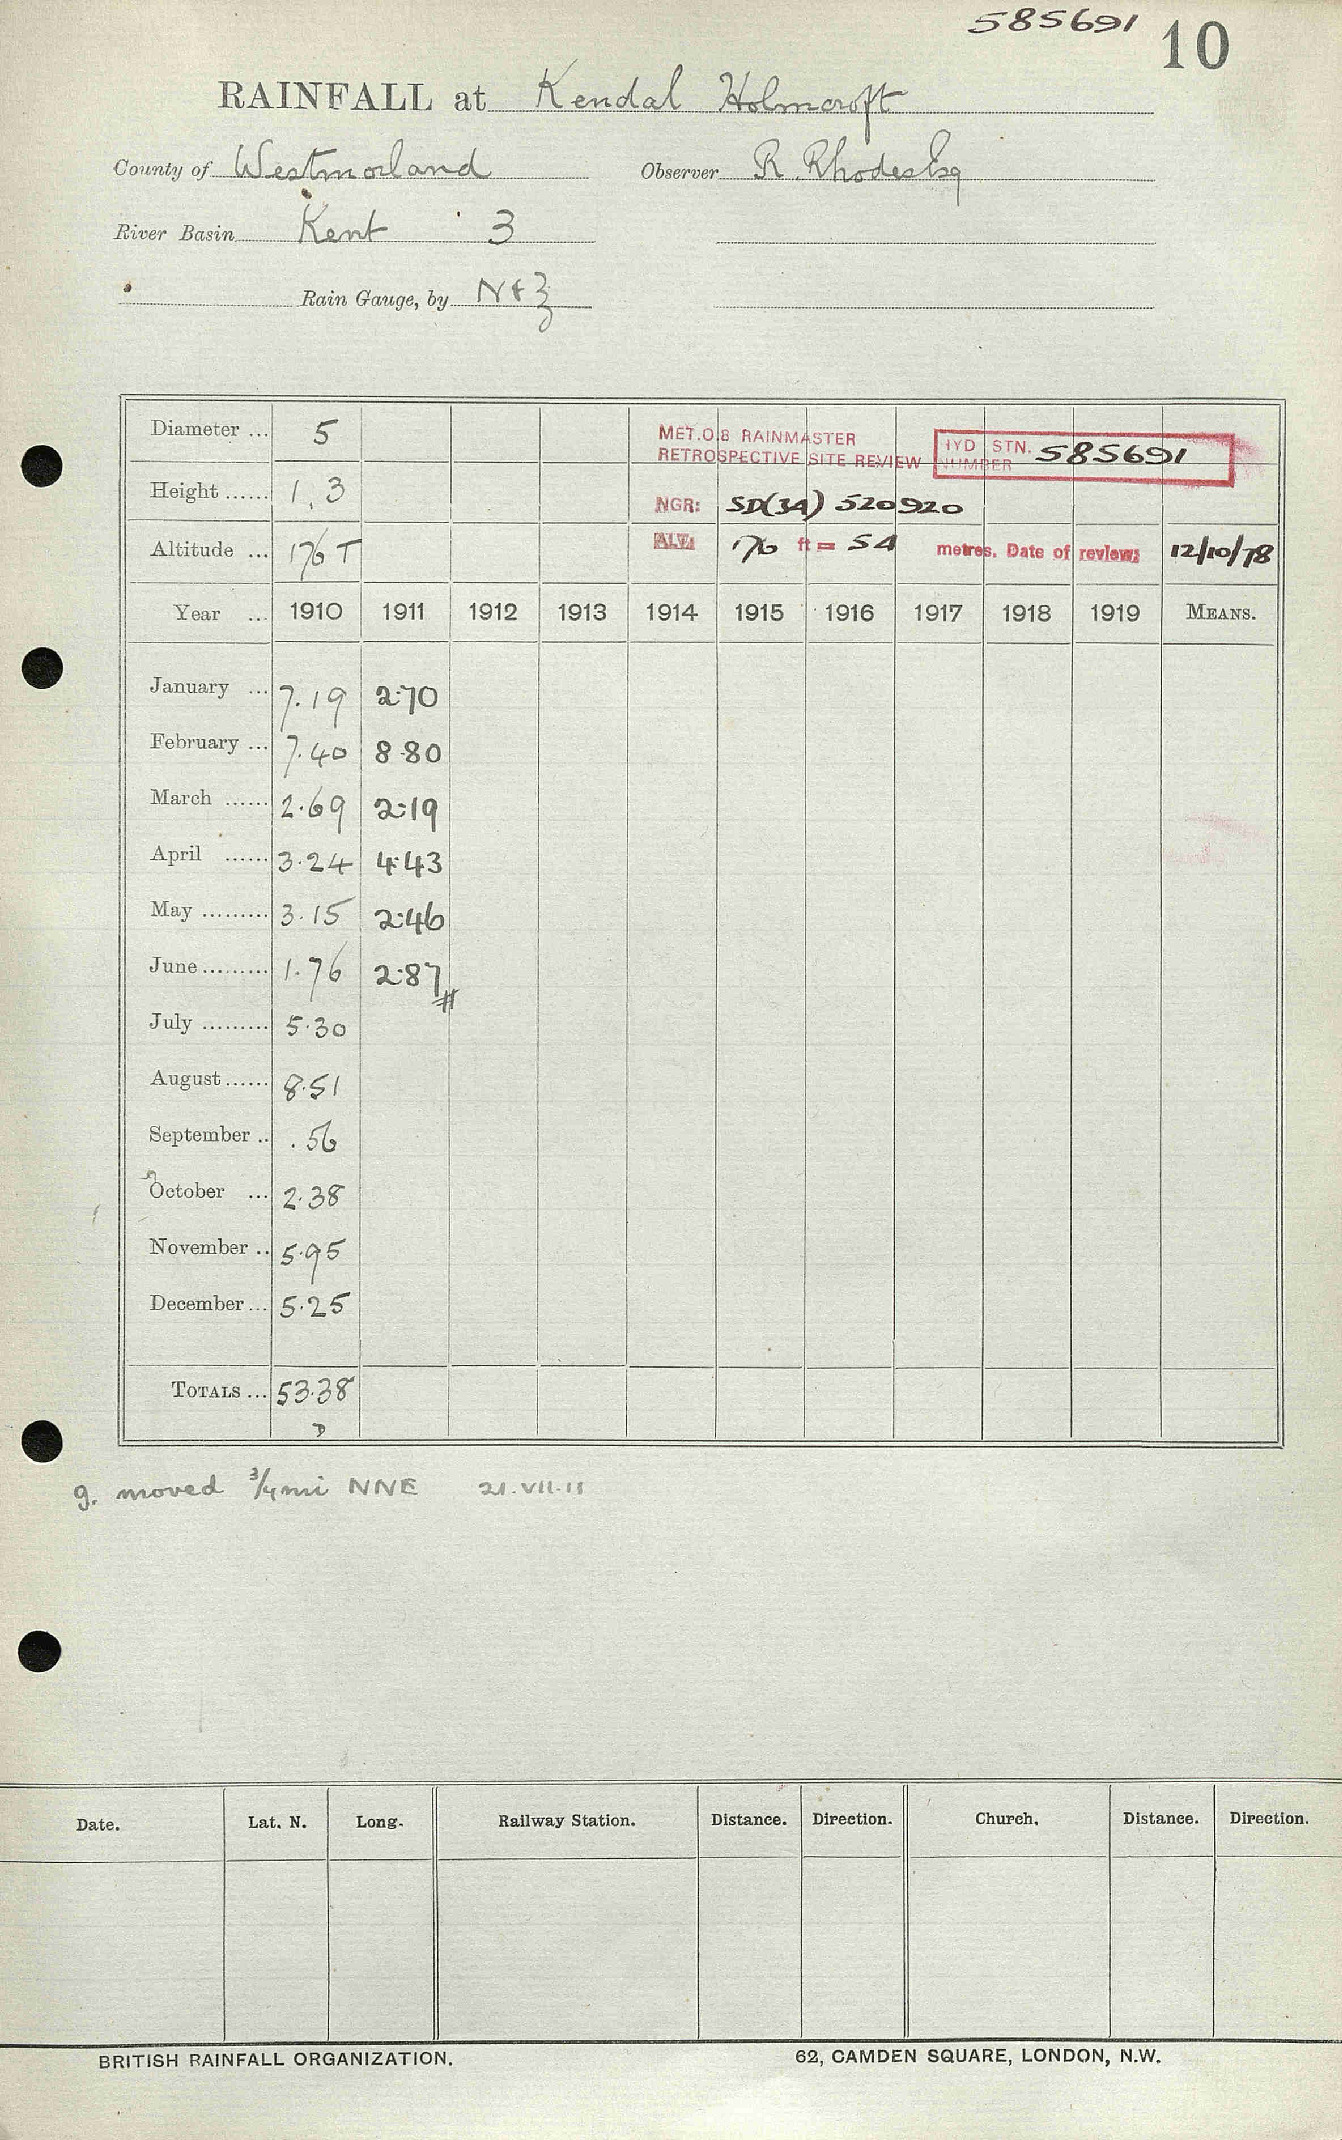 585691
10
RAINFALL at Kendal Holmcroft
County of Westmorland Observer R. Rhodes Esq
River Basin Kent 3
Rain Gauge, by N & Z
Diameter ... 5
MET.O.8 RAINMASTER
RETROSPECTIVE SITE REVIEW
HYD STN. NUMBER 585691
Height ...... 1.3
NGR: SD(34) 520920
Altitude ... 176 T
ALT: 176 ft = 54 metres. Date of review: 12/10/78
Year ... 1910 1911 1912 1913 1914 1915 1916 1917 1918 1919 MEANS.
January ... 7.19 2.70
February ... 7.40 8.80
March ...... 2.69 2.19
April ...... 3.24 4.43
May ......... 3.15 2.46
June ......... 1.76 2.87 #
July ......... 5.30
August ...... 8.51
September .. .56
October ... 2.38
November .. 5.95
December ... 5.25
TOTALS ... 53.38
D
g. moved 3/4 mi NNE 21.VII.11
Date. Lat. N. Long. Railway Station. Distance. Direction. Church. Distance. Direction.
BRITISH RAINFALL ORGANIZATION. 62, CAMDEN SQUARE, LONDON, N.W.